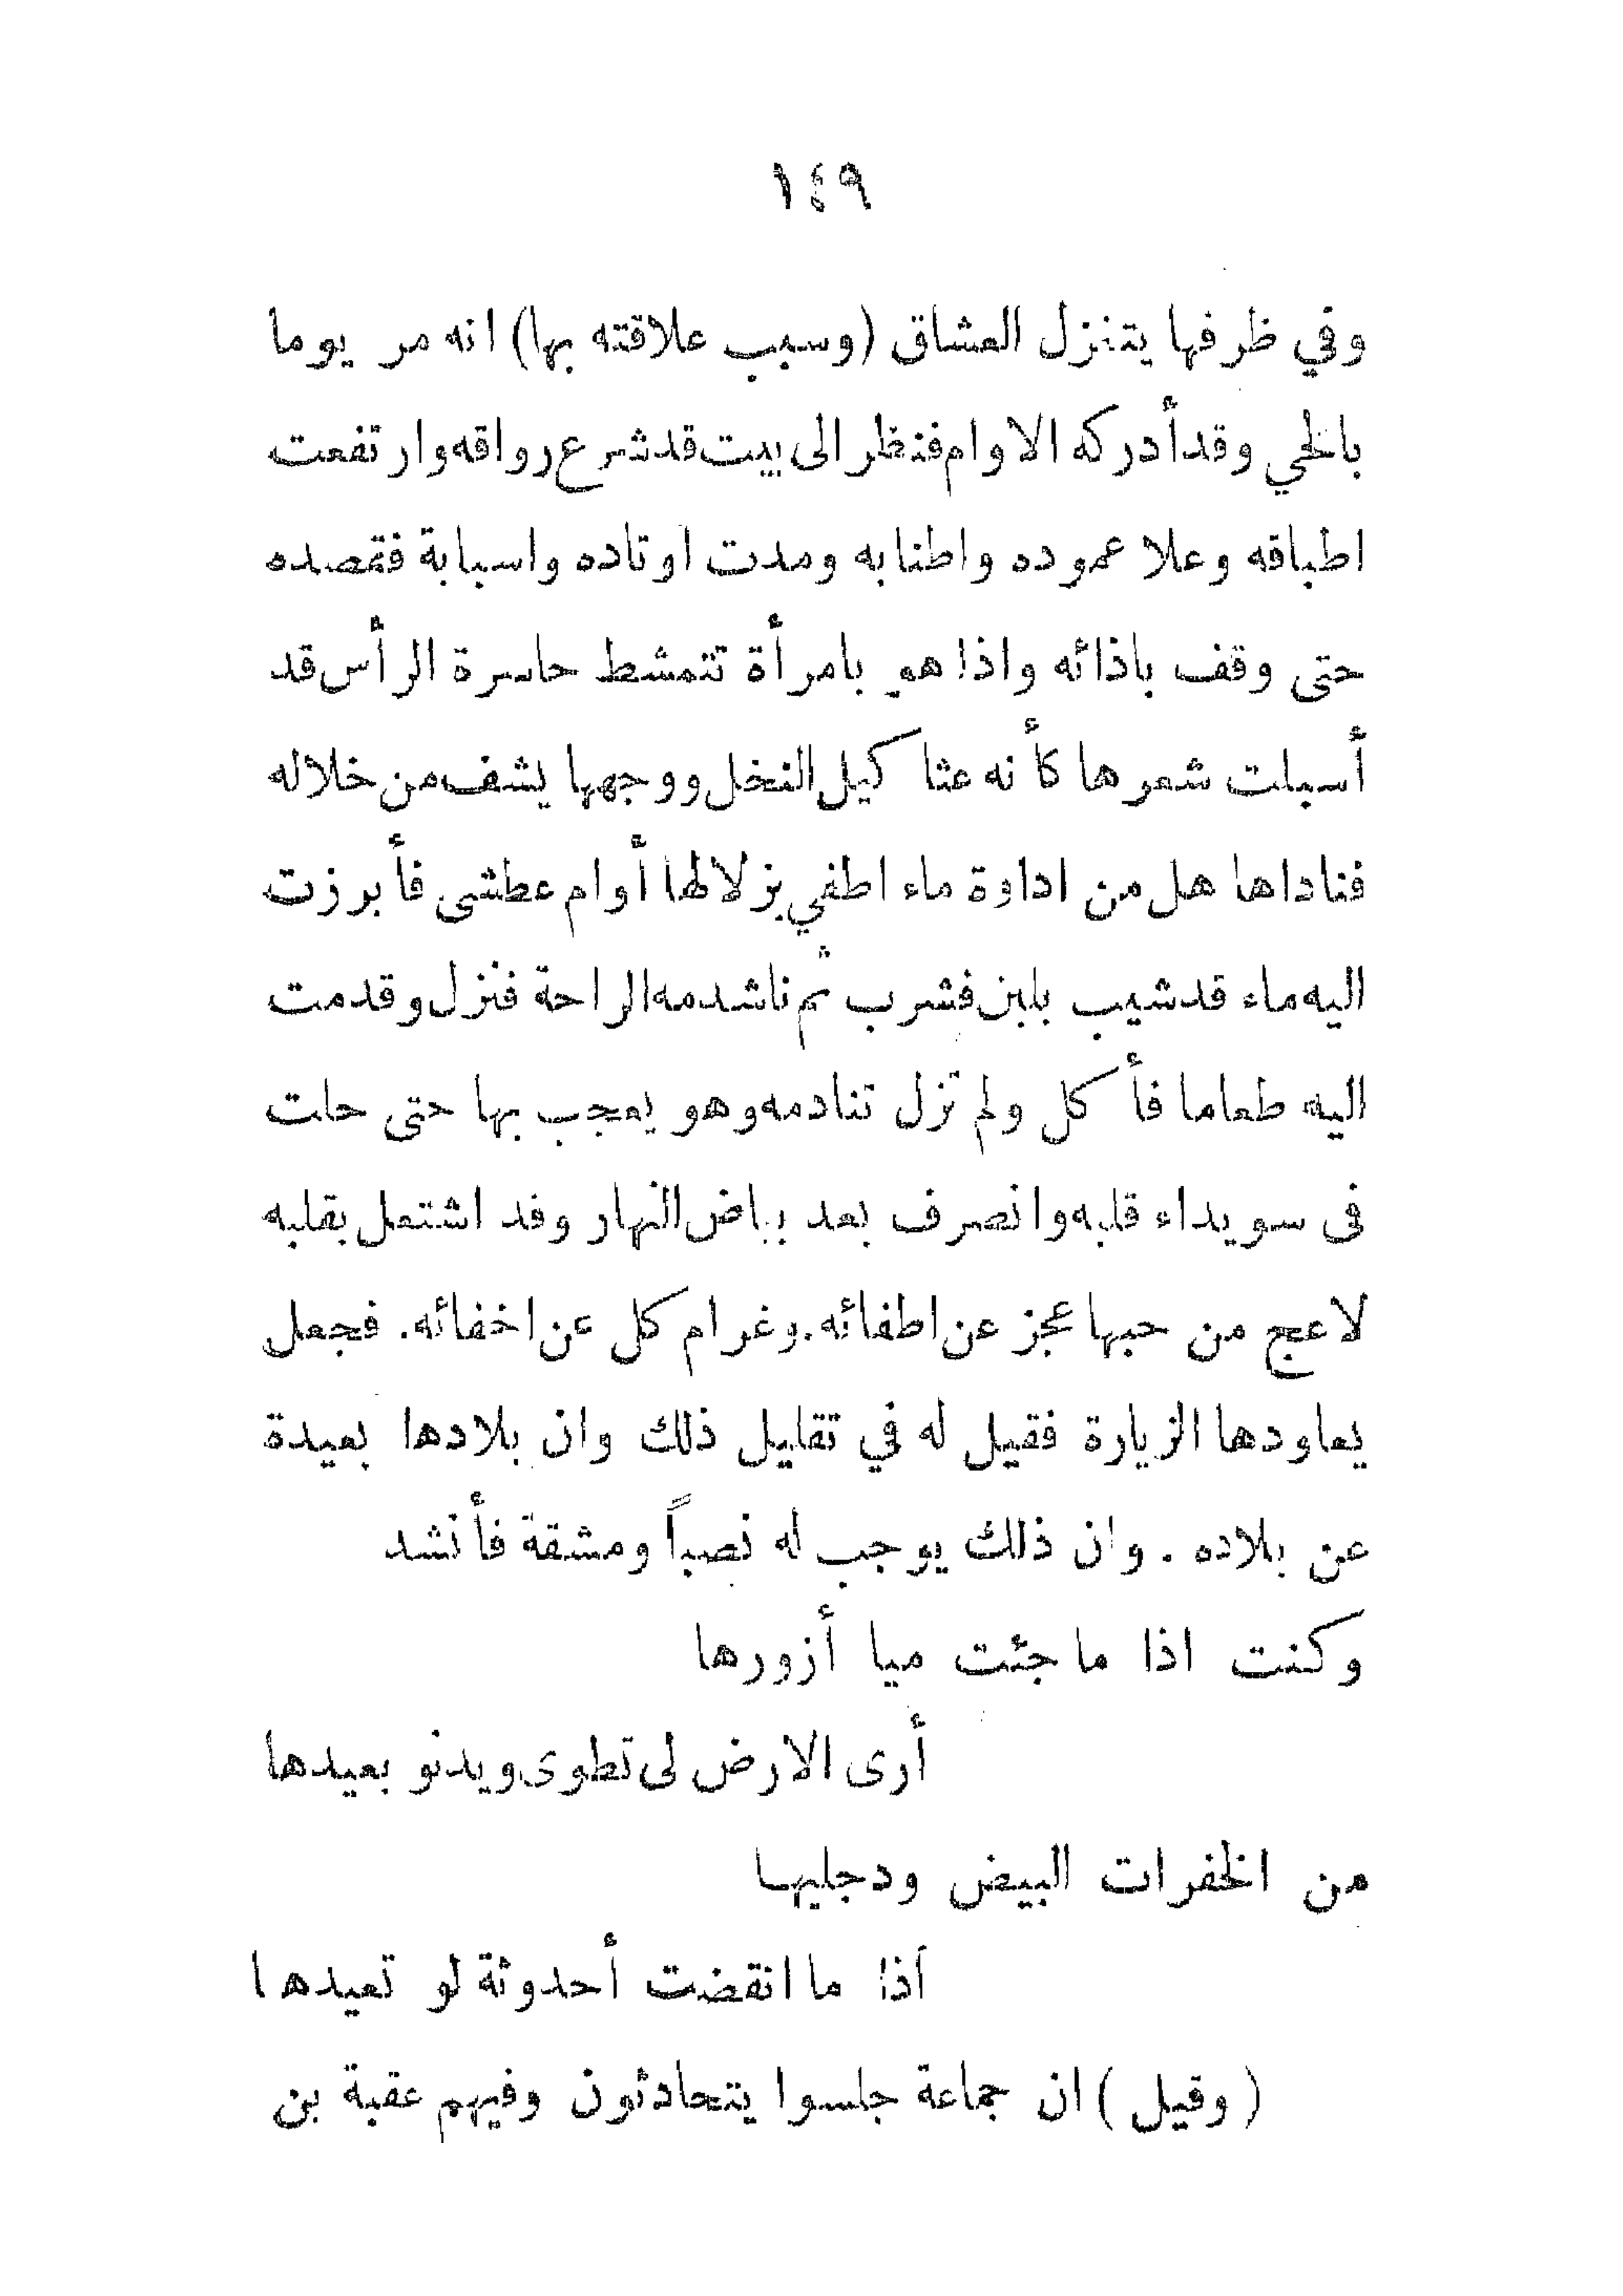 ١٤٩
وفي ظرفها يتغزل العشاق (وسبب علاقته بها) انه مر يوما
بالحي وقد أدركه الاوام فنظر الى بيت قد شرع رواقه وارتفعت
اطباقه وعلا عموده واطنابه ومدت اوتاده واسبابة فقصده
حتى وقف باذائه واذا هو بامرأة تتمشط حاسرة الرأس قد
أسبلت شعرها كأنه عثا كيل النخل ووجهها يشف من خلاله
فناداها هل من اداوة ماء اطفي بزلالها أوام عطشى فأبرزت
اليه ماء قد شيب بلبن فشرب ثم ناشدمه الراحة فنزل وقدمت
اليه طعاما فأكل ولم تزل تنادمه وهو يعجب بها حتى حلت
فى سويداء قلبه وانصرف بعد بياض النهار وقد اشتعل بقلبه
لاعج من حبها عجز عن اطفائه. وغرام كل عن اخفائه. فجعل
يعاودها الزيارة فقيل له في تقليل ذلك وان بلادها بعيدة
عن بلاده . وان ذلك يوجب له نصباً ومشقة فأنشد
وكنت اذا ما جئت ميا أزورها
أرى الارض لى تطوى ويدنو بعيدها
من الخفرات البيض ودجليها
أذا ما انقضت أحدوثة لو تعيدها
(وقيل) ان جماعة جلسوا يتحادثون وفيهم عقبة بن